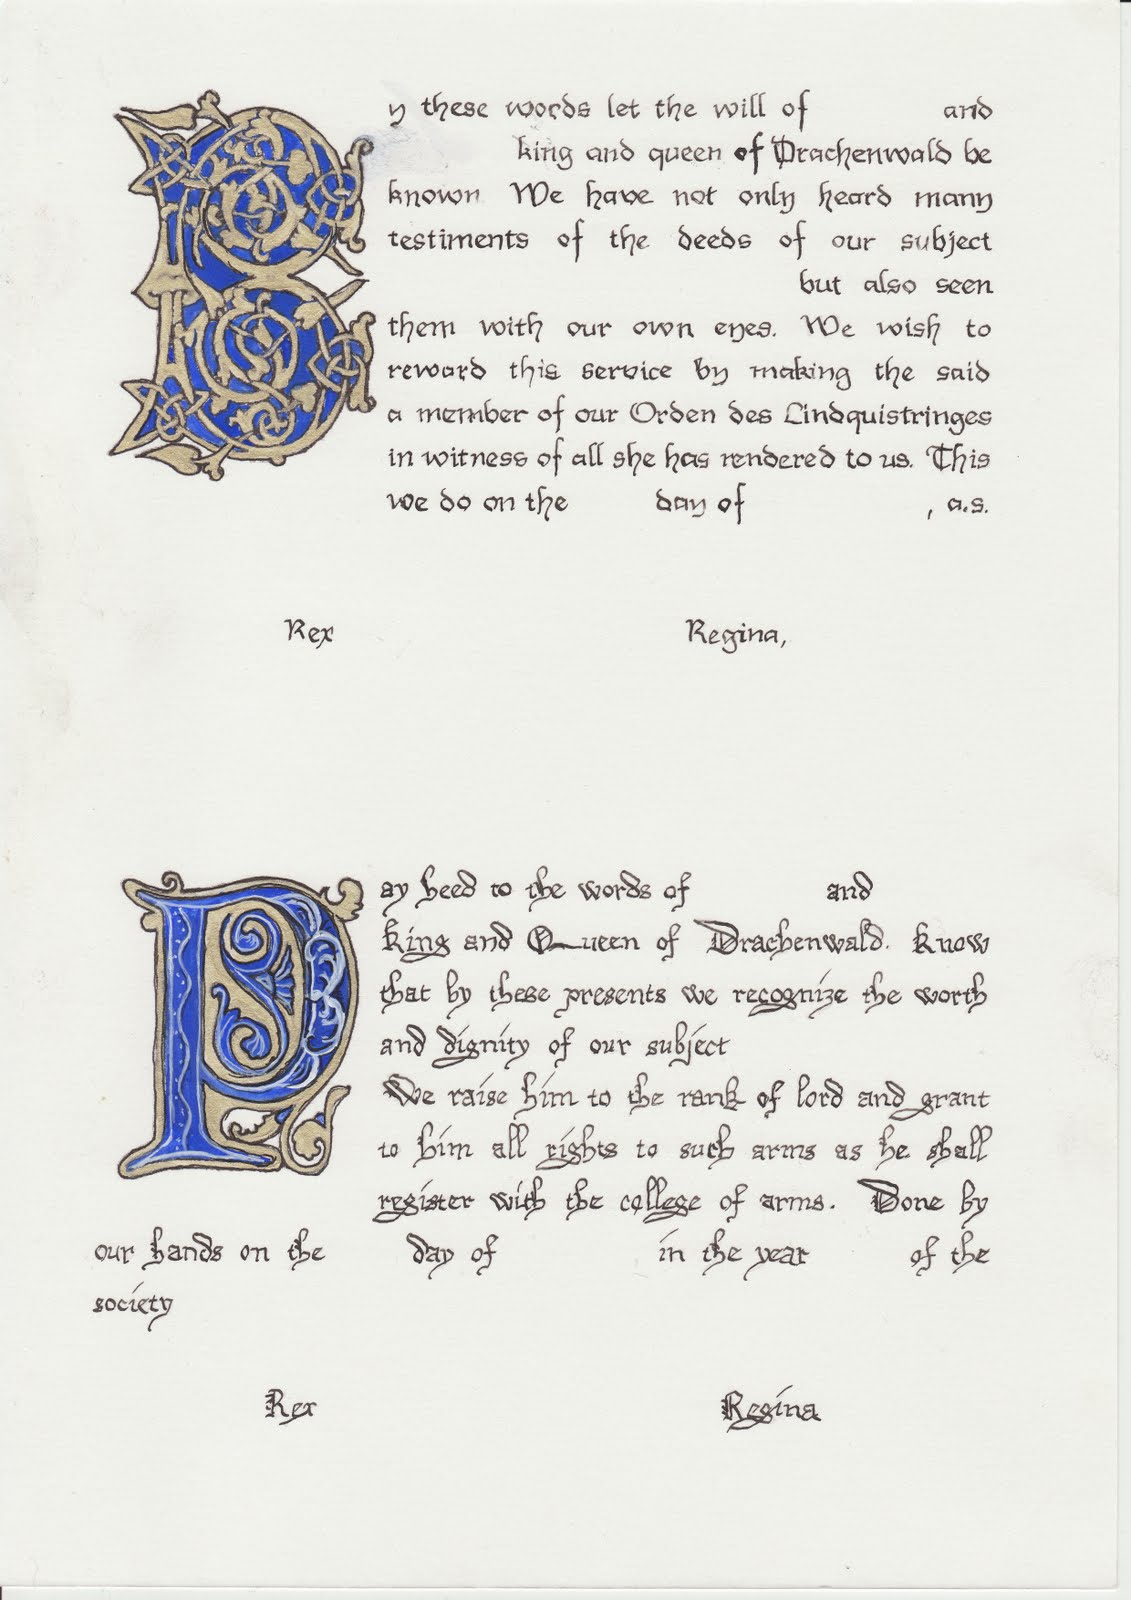 By these words let the will of and
king and queen of Drachenwald be
known We have not only heard many
testiments of the deeds of our subject
but also seen
them with our own eyes. We wish to
reward this service by making the said
a member of our Orden des Lindquistringes
in witness of all she has rendered to us. This
we do on the day of , a.s.
Rex Regina,
Pay heed to the words of and
King and Queen of Drachenwald. Know
that by these presents we recognize the worth
and dignity of our subject
We raise him to the rank of lord and grant
to him all rights to such arms as he shall
register with the college of arms. Done by
our hands on the day of in the year of the
society
Rex Regina